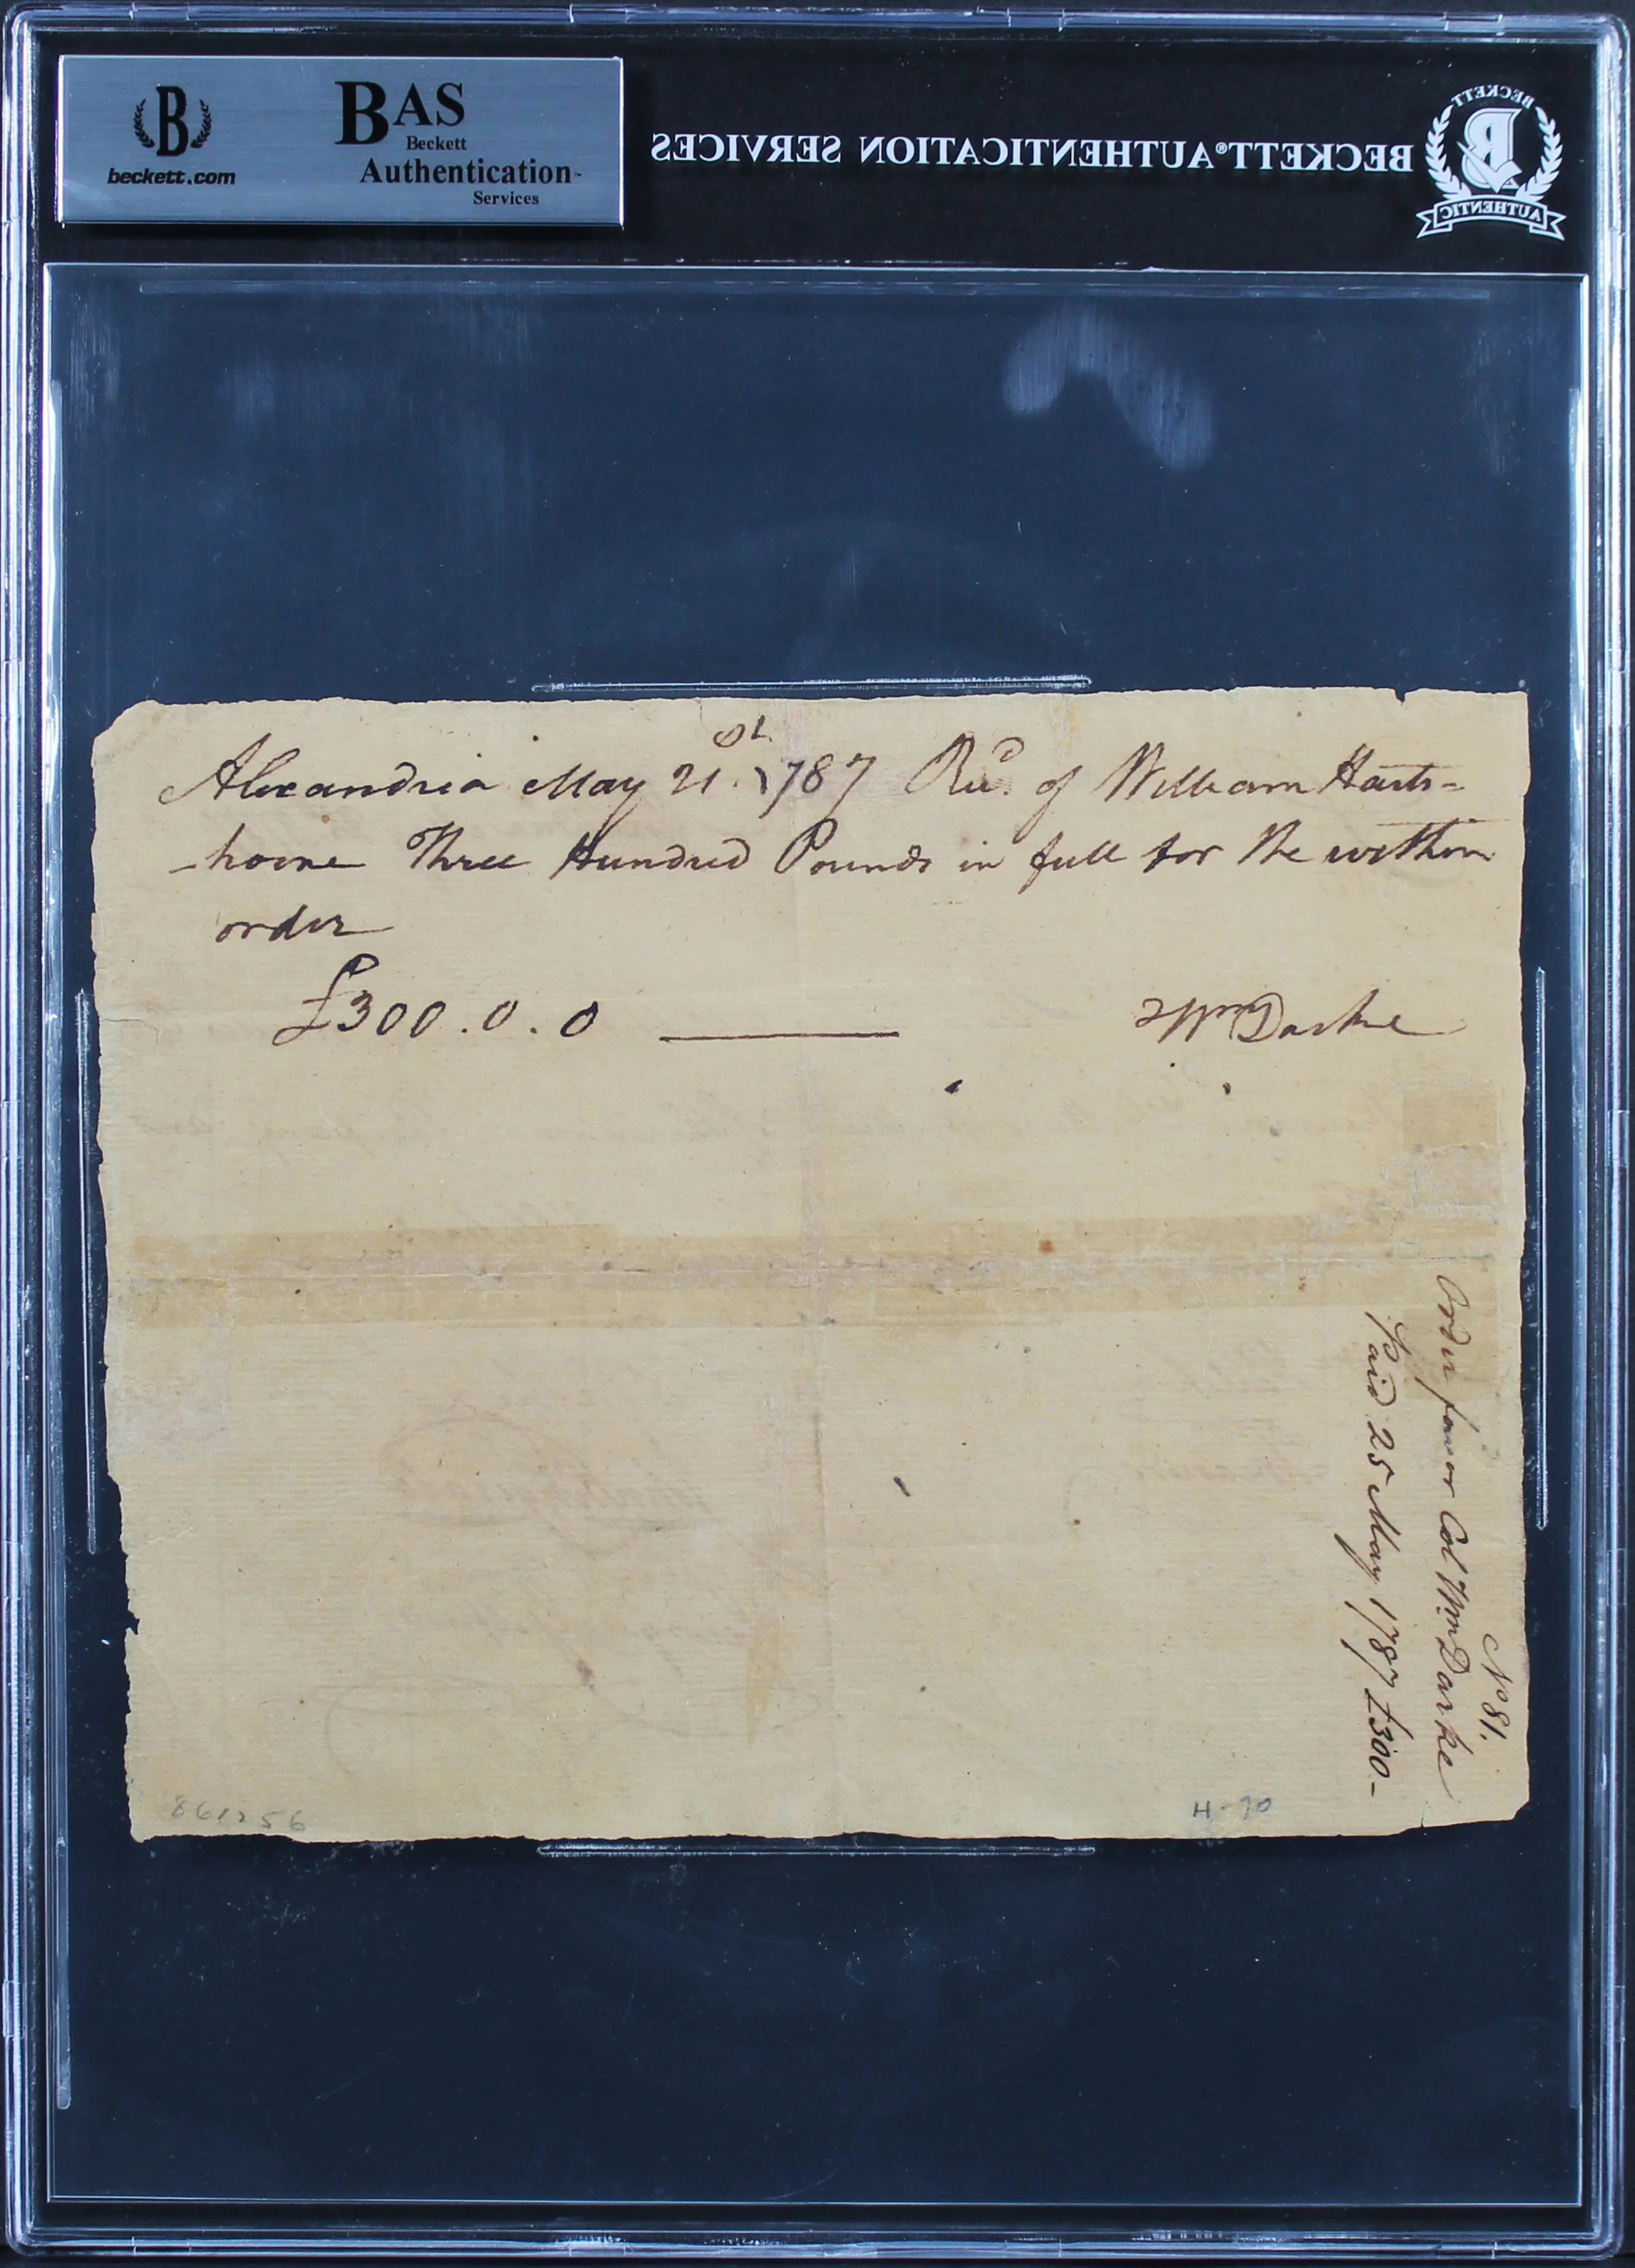 B
beckett.com
BAS
Beckett
Authentication™
Services
BECKETT® AUTHENTICATION SERVICES
BECKETT
B
AUTHENTIC
Alexandria May 21.st 1787 Recd. of William Harts=
-horne Three Hundred Pounds in full for the within
order
£300.0.0
Wm Darke
No 81.
Order favor Col Wm Darke
Paid 25 May 1787 £300-
861256
H-70